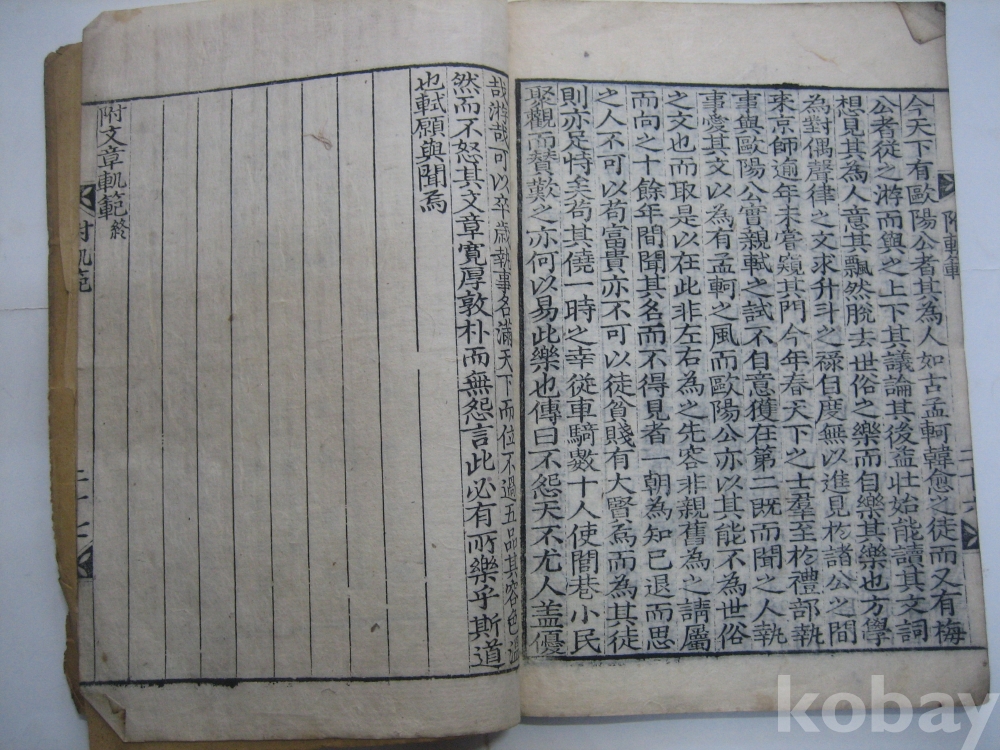 今天下有歐陽公者其為人如古孟軻韓愈之徒而又有梅
公者從之游而與之上下其議論其後益壯始能讀其文詞
想見其為人意其飄然脫去世俗之樂而自樂其樂也方學
為對偶聲律之文求升斗之祿自度無以進見於諸公之間
來京師逾年未嘗窺其門今年春天下之士羣至於禮部執
事與歐陽公實親軾之試不自意獲在第二既而聞之人執
事愛其文以為有孟軻之風而歐陽公亦以其能不為世俗
之文也而取是以在此非左右為之先容非親舊為之請屬
而向之十餘年間聞其名而不得見者一朝為知己退而思
之人不可以苟富貴亦不可以徒貧賤有大賢焉而為其徒
則亦足恃矣苟其僥一時之幸從車騎數十人使閭巷小民
聚觀而贊歎之亦何以易此樂也傳曰不怨天不尤人盖優
哉游哉可以卒歲執事名滿天下而位不過五品其容色温
然而不怒其文章寬厚敦朴而無怨言此必有所樂乎斯道
也軾願與聞焉
附文章軌範終
附軌範
kobay